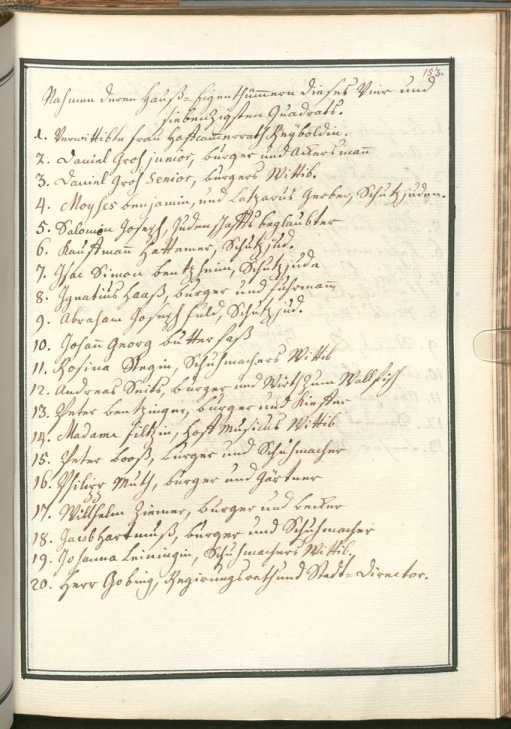 153.
Nahmen deren Hauß=Eigenthümmern dieses Vier und
siebenzigsten Quadrats.
1. Verwittibte Frau Hofkammerrath Reyboldin.
2. Daniel Groß junior, burger und Ackersmann
3. Daniel Groß Senior, burgers Wittib.
4. Moyses benjamin, und Lazarus Gerber, Schutzjuden.
5. Salomon Joseph, Judenschaffts beglaubter
6. Kauffmann Hattemer, Schutzjud.
7. Isac Simon bentzheim, Schutzjuda
8. Ignatius Haaß, burger und fuhrmann
9. Abraham Joseph fuld, Schutzjud.
10. Johann Georg butterfaß
11. Rosina Stegin, Schuhmachers Wittib
12. Andreas Seitz, burger und Wirth zum Wallfisch
13. Peter bentzinger, burger und Kieffer
14. Madame filtzin, Hoff Musicus Wittib
15. Peter booß, burger und Schuhmacher
16. Philipp Muth, burger und Gärtner
17. Willhelm Ziemer, burger und becker
18. Jacob Hartmuß, burger und Schuhmacher
19. Johanna Leiningin, Schuhmachers Wittib.
20. Herr Gobing, Regirungsrath und Stadt=Director.